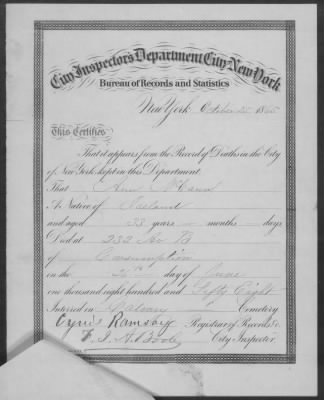 City Inspectors Department City New York
Bureau of Records and Statistics
New York October 25 1865
This Certifies
That it appears from the Record of Deaths in the City
of New York kept in this Department
That Ann McCann
A Native of Ireland
and aged 33 years - months - days
Died at 232 Av B
of Consumption
in the day of June
one thousand eight hundred and Fifty Eight
Interred in Calvary Cemetery
Cyrus Ramsay Registrar of Records &c
F. I. A. Boole City Inspector.